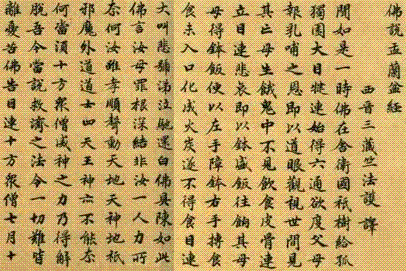 佛說盂蘭盆經
西晉三藏竺法護譯
聞如是一時佛在舍衛國祇樹給孤
獨園大目犍連始得六通欲度父母
報乳哺之恩即以道眼觀視世間見
其亡母生餓鬼中不見飲食皮骨連
立目連悲哀即以鉢盛飯往餉其母
母得鉢飯便以左手障鉢右手摶食
食未入口化成火炭遂不得食目連
大叫悲號涕泣馳還白佛具陳如此
佛言汝母罪根深結非汝一人力所
奈何汝雖孝順聲動天地天神地祇
邪魔外道道士四天王神亦不能奈
何當須十方眾僧威神之力乃得解
脫吾今當說救濟之法令一切難皆
離憂苦佛告目連十方眾僧七月十